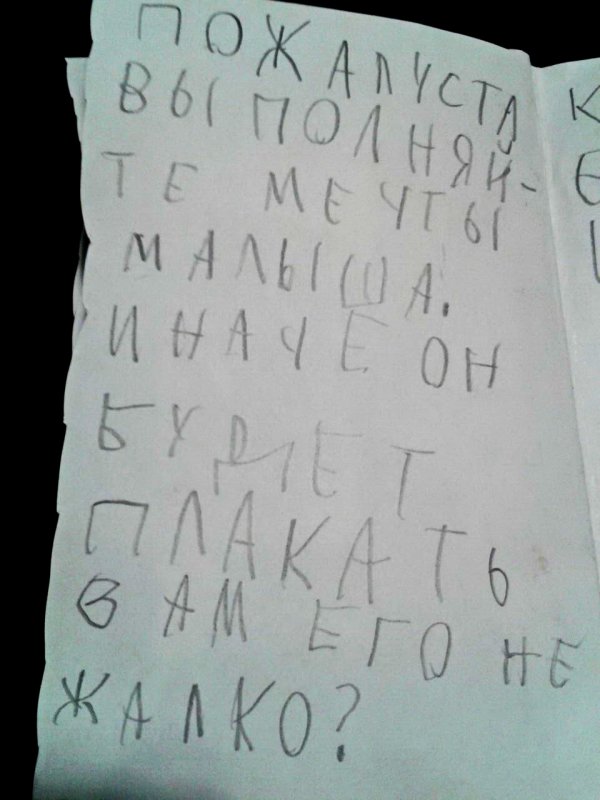 ПОЖАЛУСТА
ВЫПОЛНЯЙ-
ТЕ МЕЧТЫ
МАЛЫША.
ИНАЧЕ ОН
БУДЕТ
ПЛАКАТЬ
ВАМ ЕГО НЕ
ЖАЛКО?